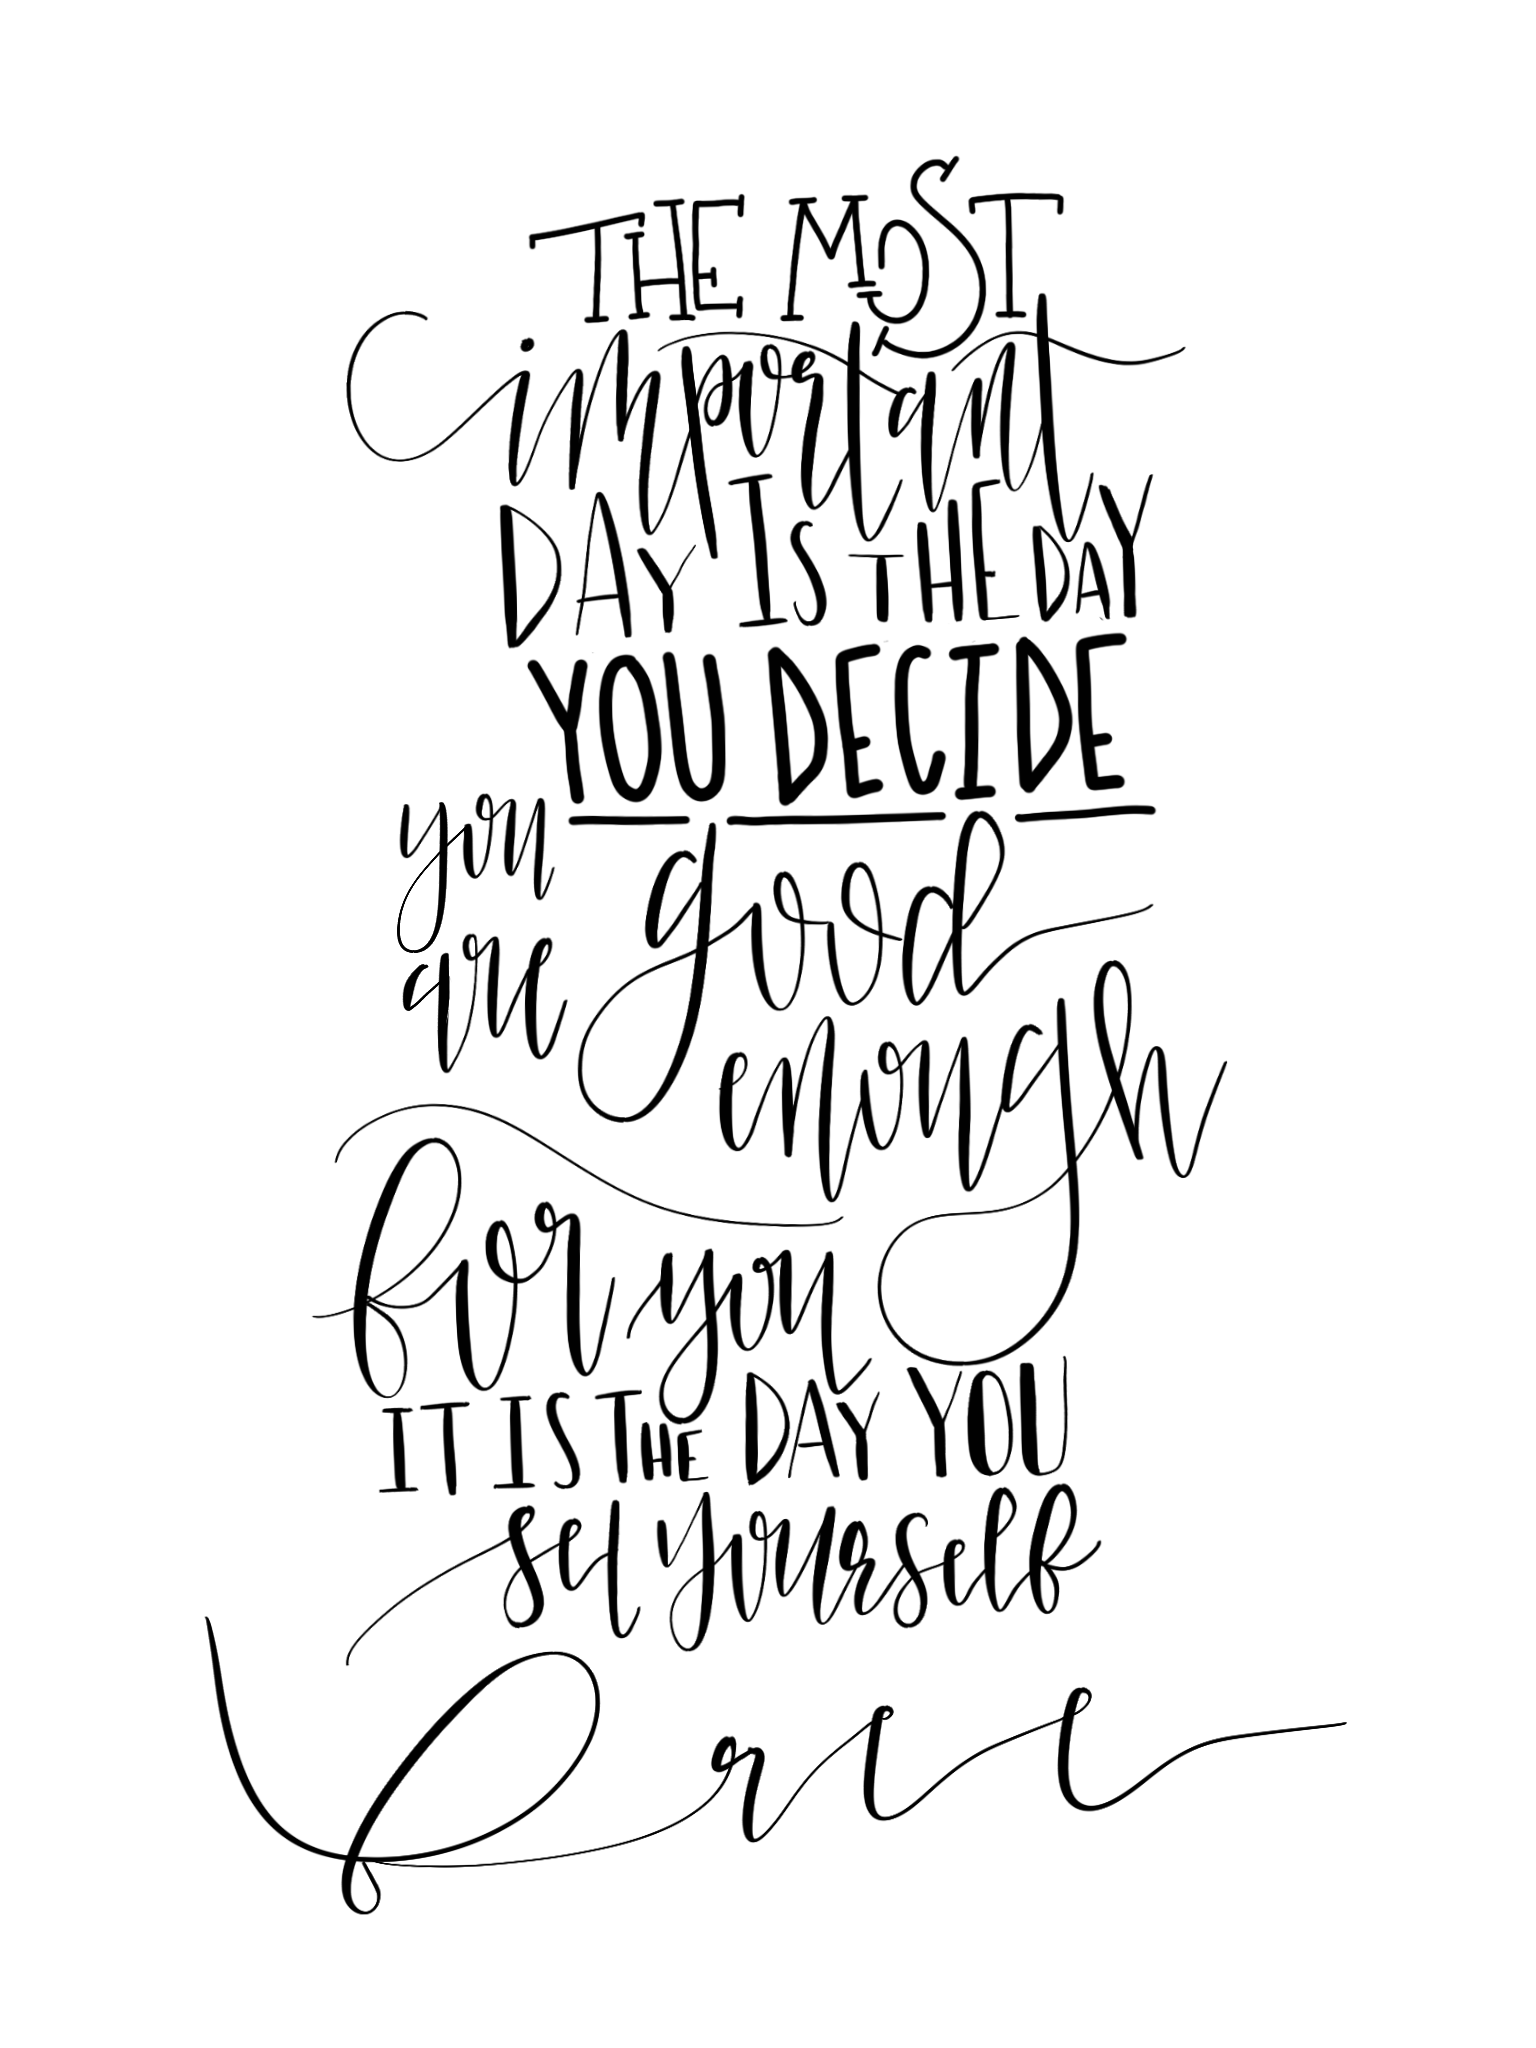 THE MOST
important
DAY IS THE DAY
YOU DECIDE
you are good
enough
for you
IT IS THE DAY YOU
set yourself
free